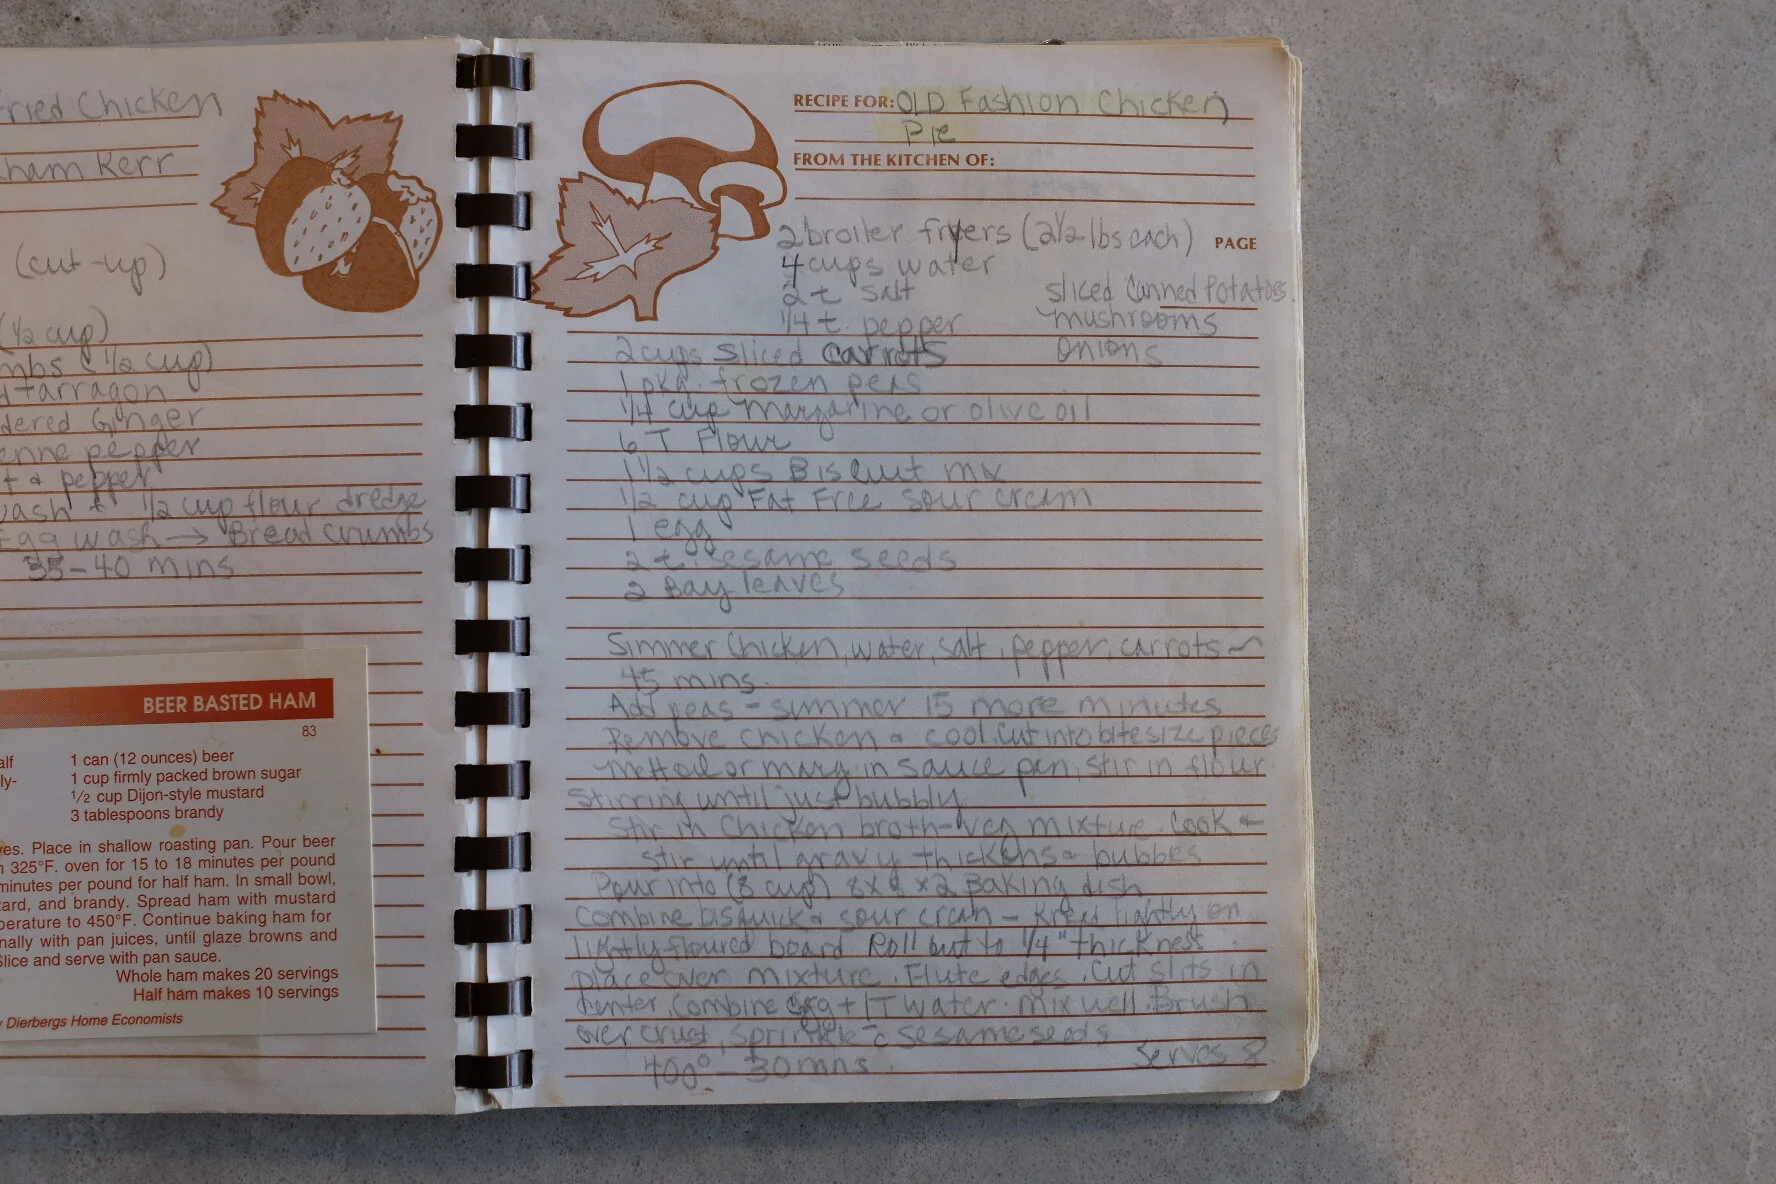 Fried Chicken
ham Kerr
(cut-up)
(1/2 cup)
mbs (1/2 cup)
d tarragon
dered Ginger
enne pepper
t & pepper
wash + 1/2 cup flour dredge
Egg wash → Bread crumbs
35-40 mins
BEER BASTED HAM
83
alf 1 can (12 ounces) beer
ly- 1 cup firmly packed brown sugar
1/2 cup Dijon-style mustard
3 tablespoons brandy
ves. Place in shallow roasting pan. Pour beer
n 325°F. oven for 15 to 18 minutes per pound
minutes per pound for half ham. In small bowl,
tard, and brandy. Spread ham with mustard
perature to 450°F. Continue baking ham for
nally with pan juices, until glaze browns and
Slice and serve with pan sauce.
Whole ham makes 20 servings
Half ham makes 10 servings
y Dierbergs Home Economists
RECIPE FOR: OLD Fashion Chicken
Pie
FROM THE KITCHEN OF:
2 broiler fryers (2 1/2 lbs each)
PAGE
4 cups water
2 t salt
1/4 t. pepper
sliced Canned Potatoes
mushrooms
onions
2 cups sliced carrots
1 pkg. frozen peas
1/4 cup margarine or olive oil
6 T Flour
1 1/2 cups Biscuit mix
1/2 cup Fat Free sour cream
1 egg
2 t. sesame seeds
2 Bay leaves
Simmer Chicken, water, salt, pepper, carrots ~
45 mins.
Add peas - simmer 15 more minutes
Remove chicken & cool. Cut into bite size pieces
Melt oil or marg. in sauce pan, stir in flour
stirring until just bubbly
Stir in Chicken broth-veg mixture. Cook &
stir until gravy thickens & bubbles
Pour into (8 cup) 8x8x2 Baking dish
Combine bisquick & sour cream - Knead lightly on
lightly floured board Roll out to 1/4" thickness
place over mixture. Flute edges. Cut slits in
center. Combine egg + 1 T water. Mix well. Brush
over crust, sprinkle c̄ sesame seeds
400° - 30 mns.
Serves 8